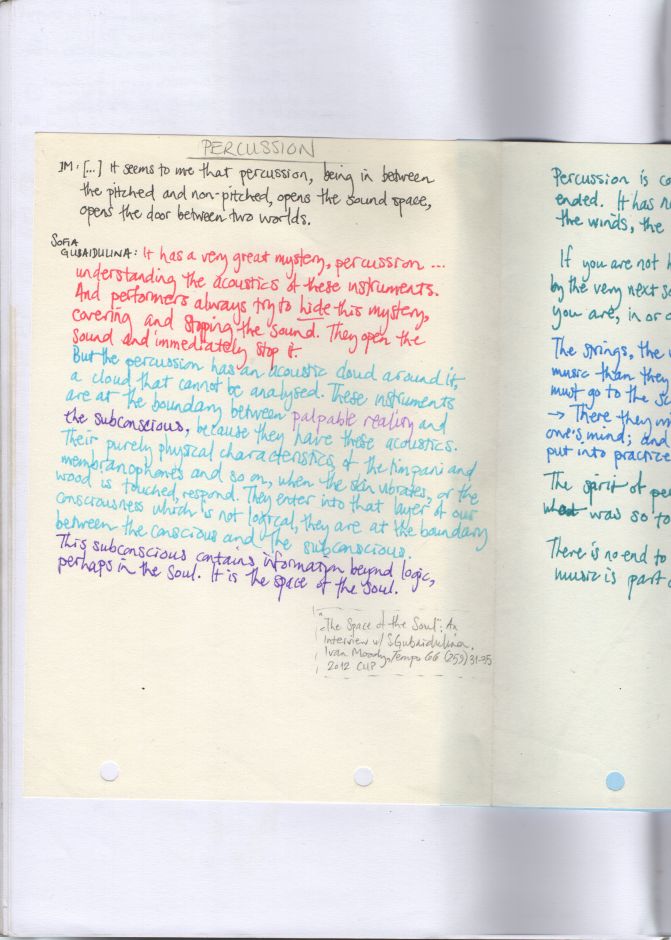 PERCUSSION
IM: [...] It seems to me that percussion, being in between
the pitched and non-pitched, opens the sound space,
opens the door between two worlds.
SOFIA
GUBAIDULINA: It has a very great mystery, percussion ...
understanding the acoustics of these instruments.
And performers always try to hide this mystery,
covering and stopping the sound. They open the
sound and immediately stop it.
But the percussion has an acoustic cloud around it,
a cloud that cannot be analysed. These instruments
are at the boundary between palpable reality and
the subconscious, because they have these acoustics.
Their purely physical characteristics, of the timpani and
membranophones and so on, when the skin vibrates, or the
wood is touched, respond. They enter into that layer of our
consciousness which is not logical, they are at the boundary
between the conscious and the subconscious.
This subconscious contains information beyond logic,
perhaps in the soul. It is the space of the soul.
"The Space of the Soul": An
Interview w/ S. Gubaidulina.
Ivan Moody, Tempo 66 (259) 31-35
2012 CUP
Percussion is
ended. It has
the winds, the
If you are not
by the very next
you are, in or
The strings, the
music than they
must go to the
→ There they
one's mind; and
put into practice
The spirit of
what was so to
There is no end to
music is part